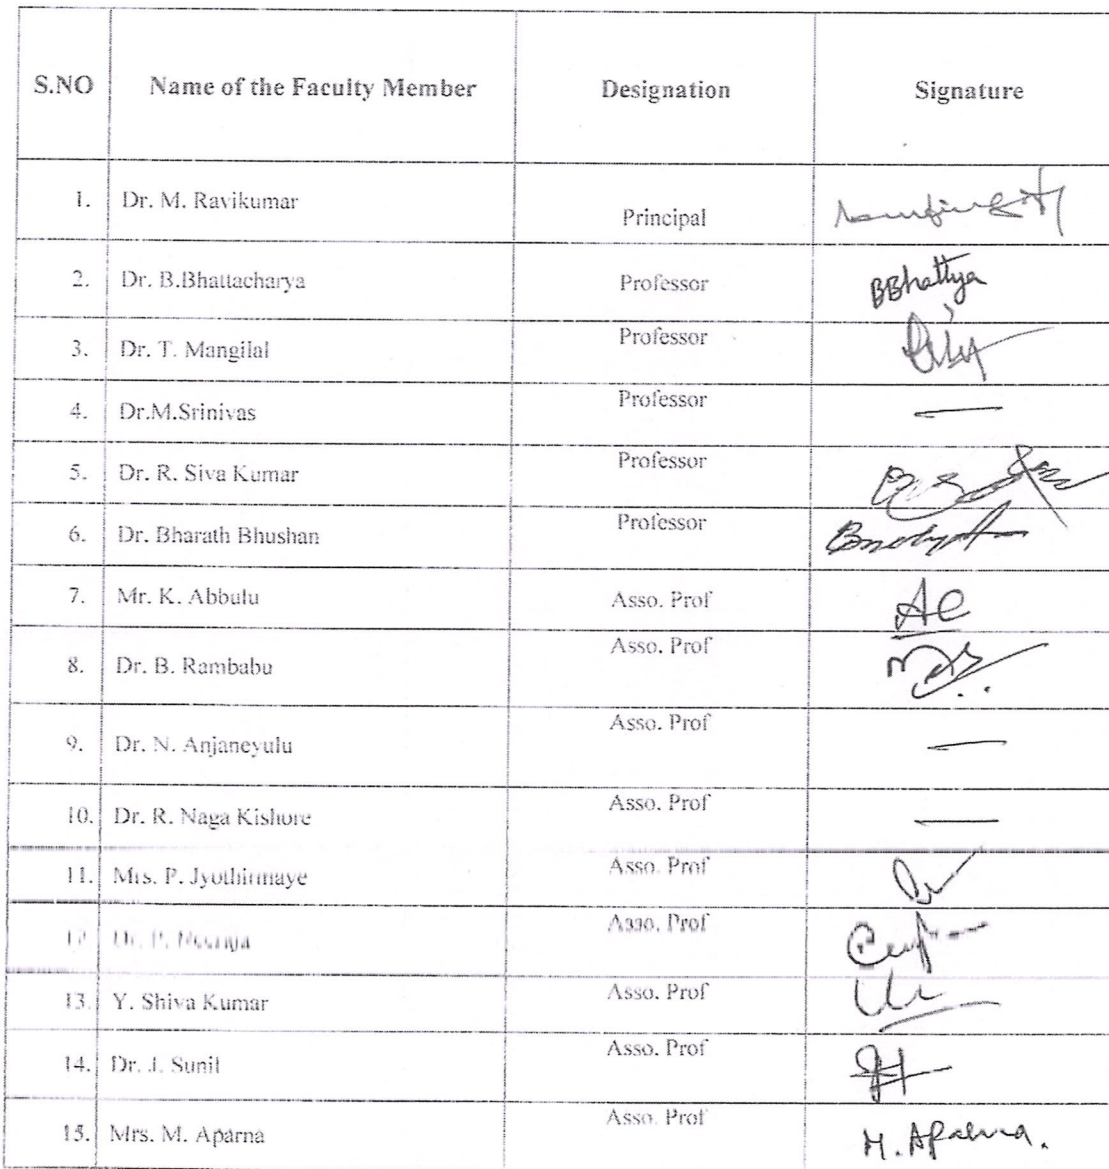 S.NO Name of the Faculty Member Designation Signature
1. Dr. M. Ravikumar Principal
2. Dr. B.Bhattacharya Professor BBhattya
3. Dr. T. Mangilal Professor
4. Dr.M.Srinivas Professor —
5. Dr. R. Siva Kumar Professor
6. Dr. Bharath Bhushan Professor
7. Mr. K. Abbulu Asso. Prof
8. Dr. B. Rambabu Asso. Prof
9. Dr. N. Anjaneyulu Asso. Prof —
10. Dr. R. Naga Kishore Asso. Prof —
11. Mrs. P. Jyothirmaye Asso. Prof
12. Dr. P. Asso. Prof
13. Y. Shiva Kumar Asso. Prof
14. Dr. J. Sunil Asso. Prof
15. Mrs. M. Aparna Asso. Prof M. Aparna.